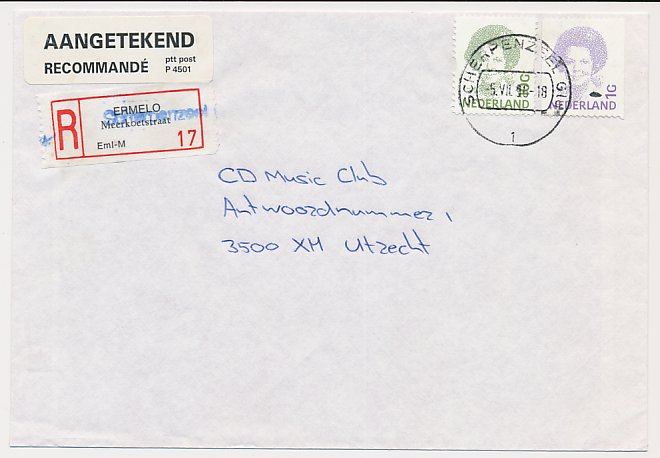 AANGETEKEND
RECOMMANDÉ
ptt post
P 4501
R
ERMELO
Scherpenzeel
Meerkoetstraat
Eml-M
17
SCHERPENZEEL GLD
-5.VII.
-18
1
G
NEDERLAND
1G
NEDERLAND
CD Music Club
Antwoordnummer 1
3500 XH Utrecht